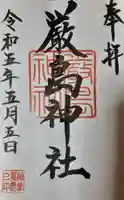 奉拝
厳島神社
令和五年五月五日